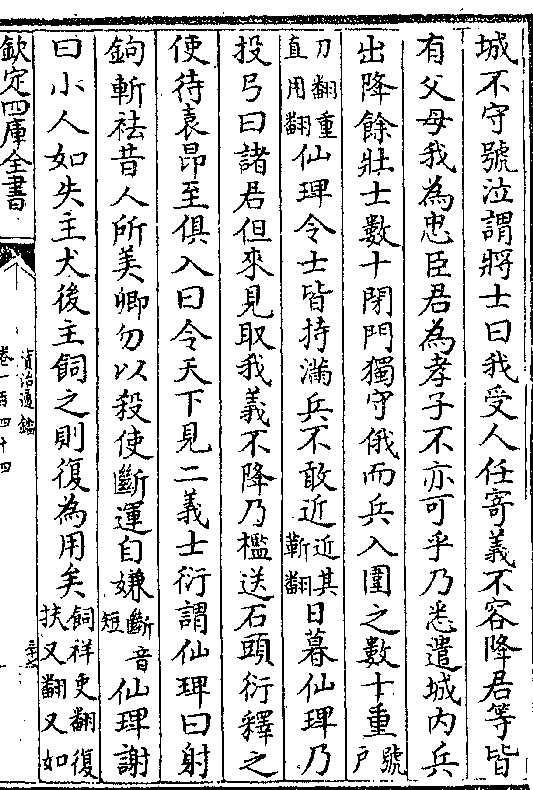 城不守號泣謂將士曰我受人任寄義不容降君等皆
有父母我為忠臣君為孝子不亦可乎乃悉遣城内兵
出降餘壯士數十閉門獨守俄而兵入圍之數十重號戶
刀翻重直用翻仙琕令士皆持滿兵不敢近近其靳翻日暮仙琕乃
投弓曰諸君但來見取我義不降乃檻送石頭衍釋之
使待袁昂至俱入曰令天下見二義士衍謂仙琕曰射
鉤斬袪昔人所美卿勿以殺使斷運自嫌斷音短仙琕謝
曰小人如失主犬後主飼之則復為用矣飼祥吏翻復扶又翻又如
欽定四庫全書
資治通鑑
卷一百四十四